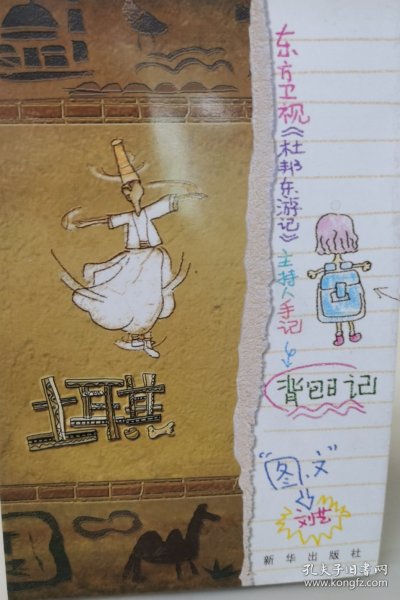 土耳其
东方卫视《杜邦东游记》主持人手记
背包日记
"图、文"
刘芸
新华出版社
孔夫子旧书网
www.kongfz.com